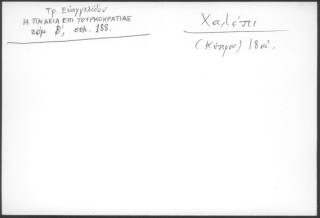 Τρ. Ευαγγελίδου
Η ΠΑΙΔΕΙΑ ΕΠΙ ΤΟΥΡΚΟΚΡΑΤΙΑΣ
τόμ. Β', σελ. 188.
Χαλέπι
(Κύπρος) 18ος.